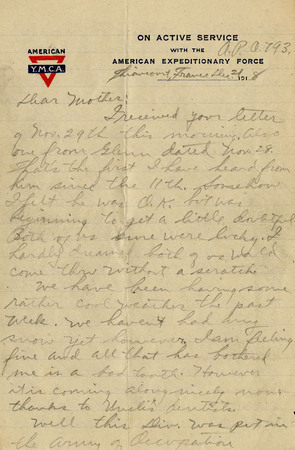 AMERICAN
Y.M.C.A.
ON ACTIVE SERVICE
WITH THE
AMERICAN EXPEDITIONARY FORCE
A.P.O. 793.
France Dec 21 1918
Dear Mother:
I received your letter
of Nov. 29th this morning. Also
one from Glenn dated Nov. 28.
That's the first I have heard from
him since the 11th. Somehow
I felt he was O.K. but was
beginning to get a little doubtful
Both of us sure were lucky. I
hardly dreamed both of us would
come thru without a scratch.
We have been having some
rather cool weather the past
week. We haven't had any
snow yet however. I am feeling
fine and all that has bothered
me is a bad tooth. However
it is coming along nicely now
thanks to Uncle's dentists.
Well this Div. was put in
the Army of Occupation